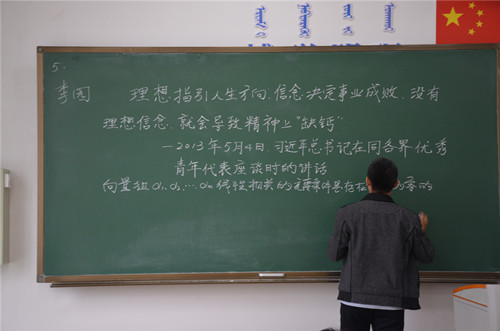 5.
李图 理想指引人生方向、信念决定事业成败、没有
理想信念、就会导致精神上"缺钙"
—2013年5月4日,习近平总书记在同各界优秀
青年代表座谈时的讲话
向量组α₁,α₂,…αₘ线性相关的充要条件是存在 为零的